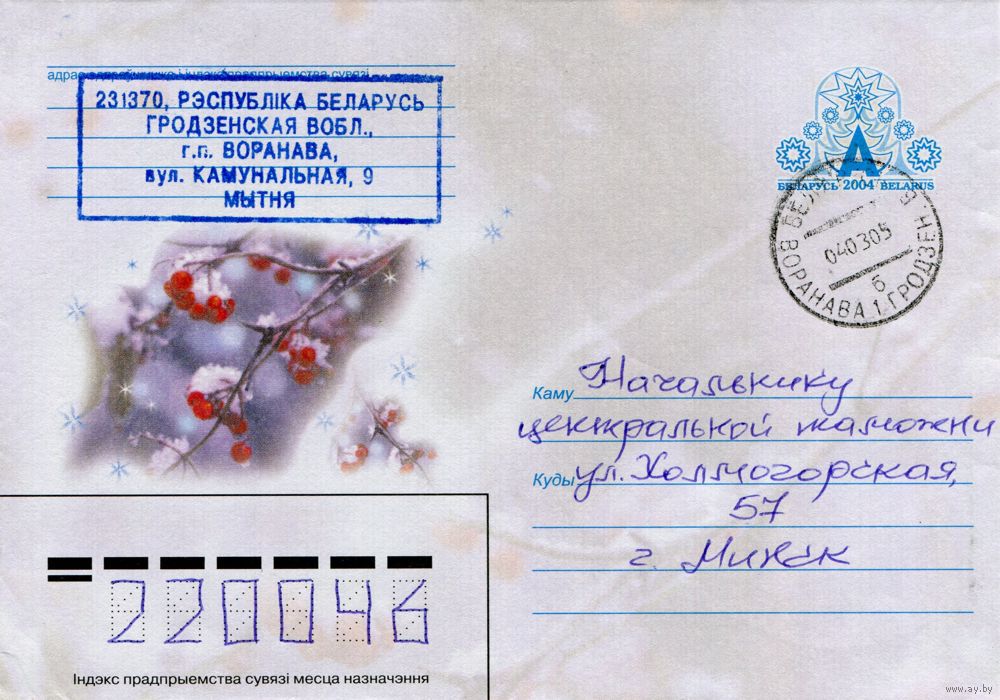 адрас адпраўшчыка і індэкс прадпрыемства сувязі
231370, РЭСПУБЛІКА БЕЛАРУСЬ
ГРОДЗЕНСКАЯ ВОБЛ.,
г.п. ВОРАНАВА,
вул. КАМУНАЛЬНАЯ, 9
МЫТНЯ
А
БЕЛАРУСЬ 2004 BELARUS
040305
б
ВОРАНАВА 1 ГРОДЗЕН
Каму Начальнику
центральной таможни
Куды ул. Холмогорская,
57
г. Минск
220046
Індэкс прадпрыемства сувязі месца назначэння
www.ay.by